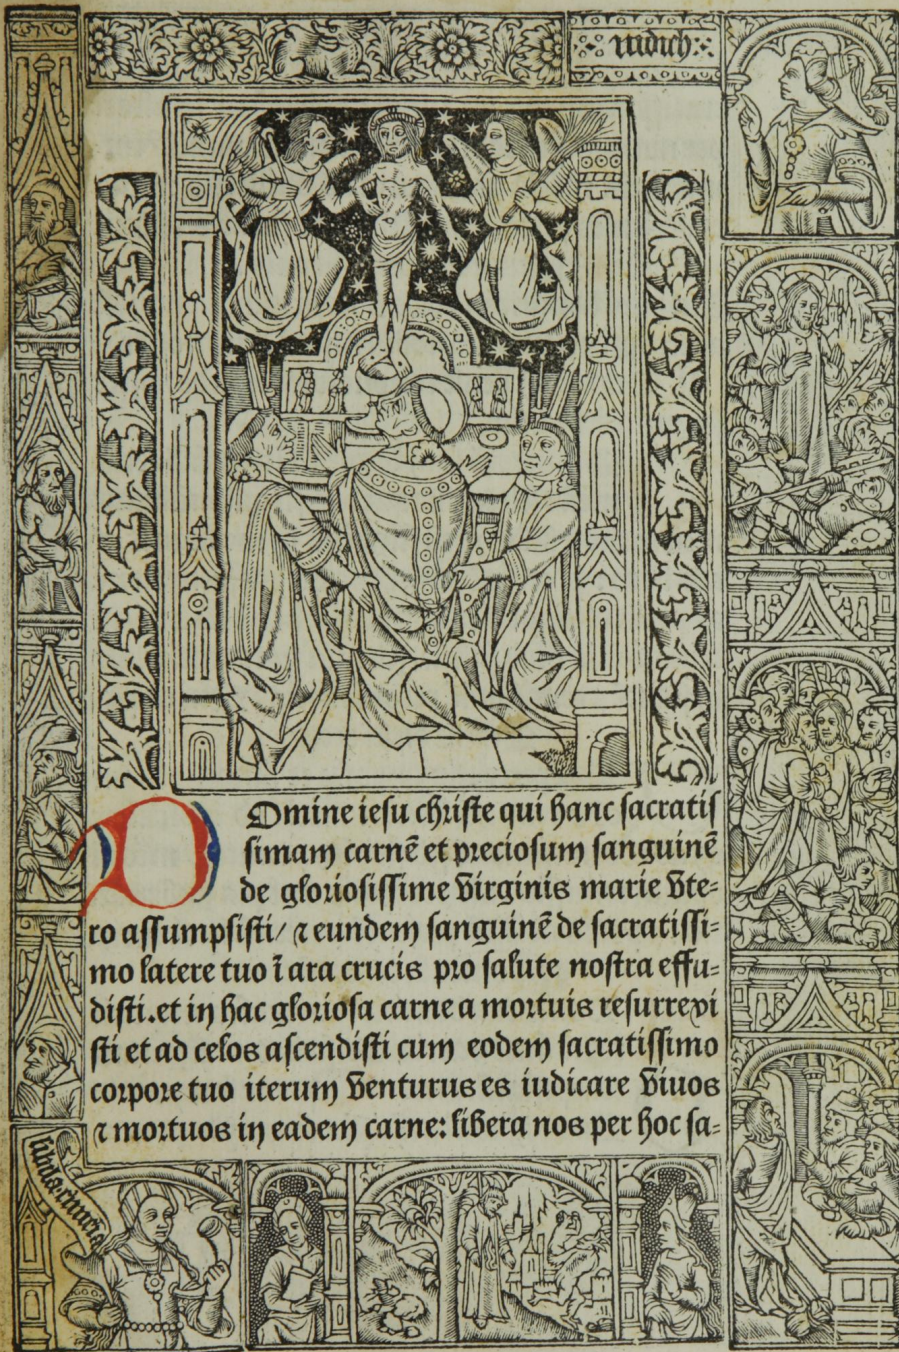 iudich
Domine iesu christe qui hanc sacratis
simam carnē et preciosum sanguinē
de gloriosissime virginis marie vte-
ro assumpsisti/ ⁊ eundem sanguinē de sacratissi-
mo latere tuo ī ara crucis pro salute nostra effu-
disti. et in hac gloriosa carne a mortuis resurrexi
sti et ad celos ascendisti cum eodem sacratissimo
corpore tuo iterum venturus es iudicare viuos
⁊ mortuos in eadem carne: libera nos per hoc sa-